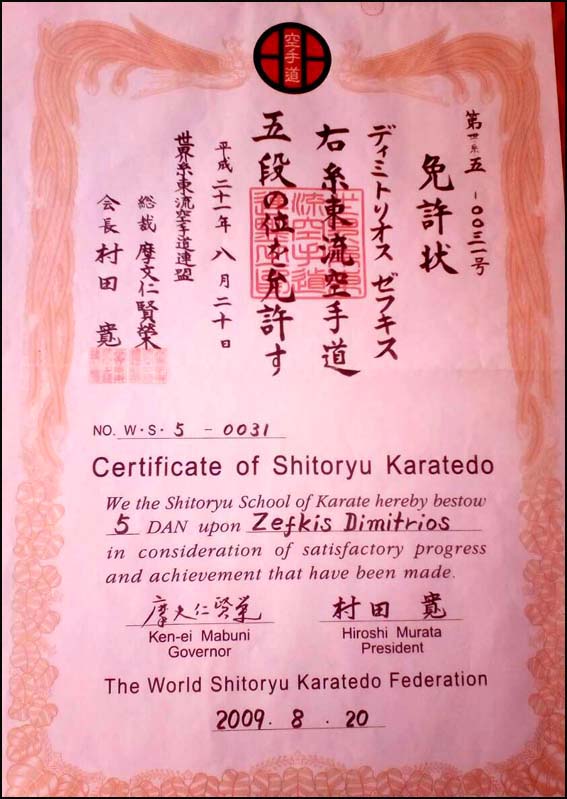 空手道
第世糸五-〇〇三一号
免許状
ディミトリオス ゼフキス
右糸東流空手道
五段の位を允許す
平成二十一年八月二十日
世界糸東流空手道連盟
総裁 摩文仁賢榮
会長 村田 寛
NO. W·S·5-0031
Certificate of Shitoryu Karatedo
We the Shitoryu School of Karate hereby bestow
5 DAN upon Zefkis Dimitrios
in consideration of satisfactory progress
and achievement that have been made.
摩文仁賢榮 村田 寛
Ken-ei Mabuni Hiroshi Murata
Governor President
The World Shitoryu Karatedo Federation
2009.8.20